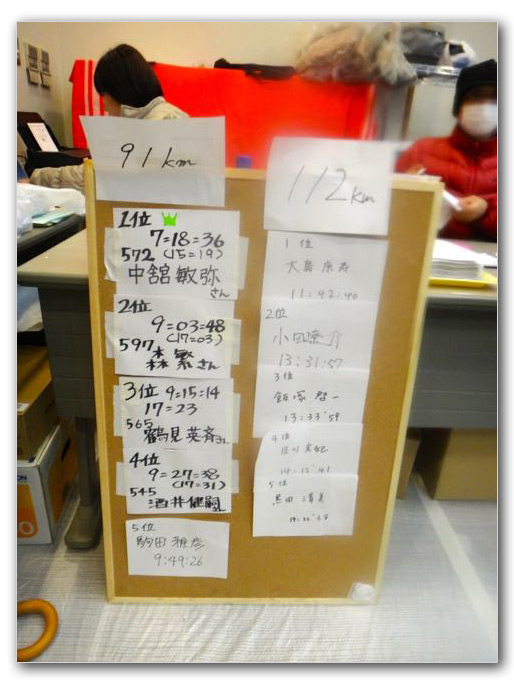 91km
1位
7=18=36
572 (15=19)
中舘敏弥
さん
2位
9=03=48
(17=03)
597
森 繁さん
3位 9=15=14
17=23
565
鶴見英斉さん
4位
9=27=38
545 (17=31)
酒井健嗣さん
5位
駒田雅彦
9:49:26
112km
1位
大島康寿
11:42:40
2位
小田
13:31:57
3位
飯塚 啓一
13:33'59
4位
14:12'41
5位
黒田 清美